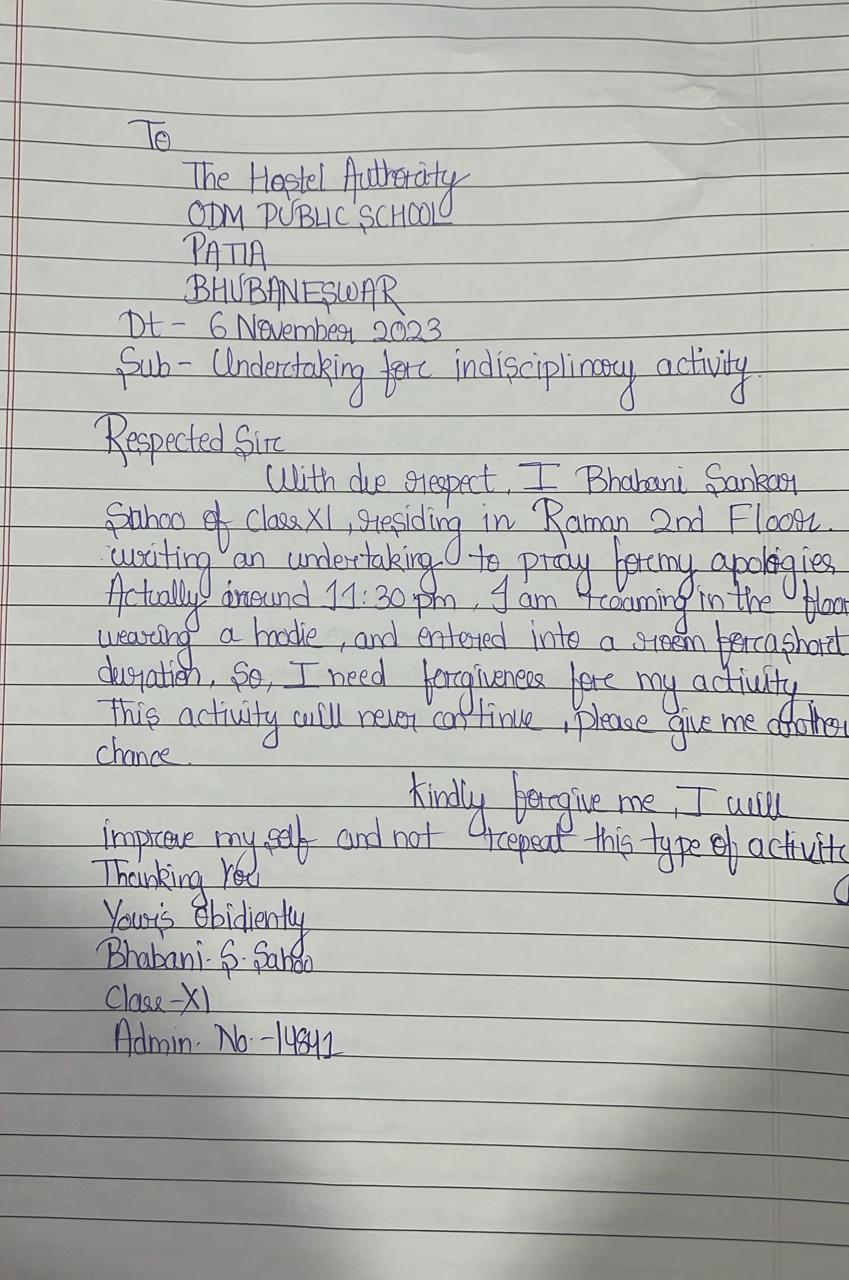 To
The Hostel Authority
ODM PUBLIC SCHOOL
PATIA
BHUBANESWAR
Dt - 6 November 2023
Sub - Undertaking for indisciplinary activity.
Respected Sir
With due respect, I Bhabani Sankar
Sahoo of Class XI, residing in Raman 2nd Floor.
writing an undertaking to pray for my apologies
Actually around 11:30 pm, I am roaming in the floor
wearing a hoodie, and entered into a room for a short
duration, So, I need forgiveness for my activity
This activity will never continue, please give me another
chance.
Kindly forgive me, I will
improve my self and not repeat this type of activity
Thanking You
Your's Obidiently
Bhabani. S. Sahoo
Class-XI
Admin. No.-14841